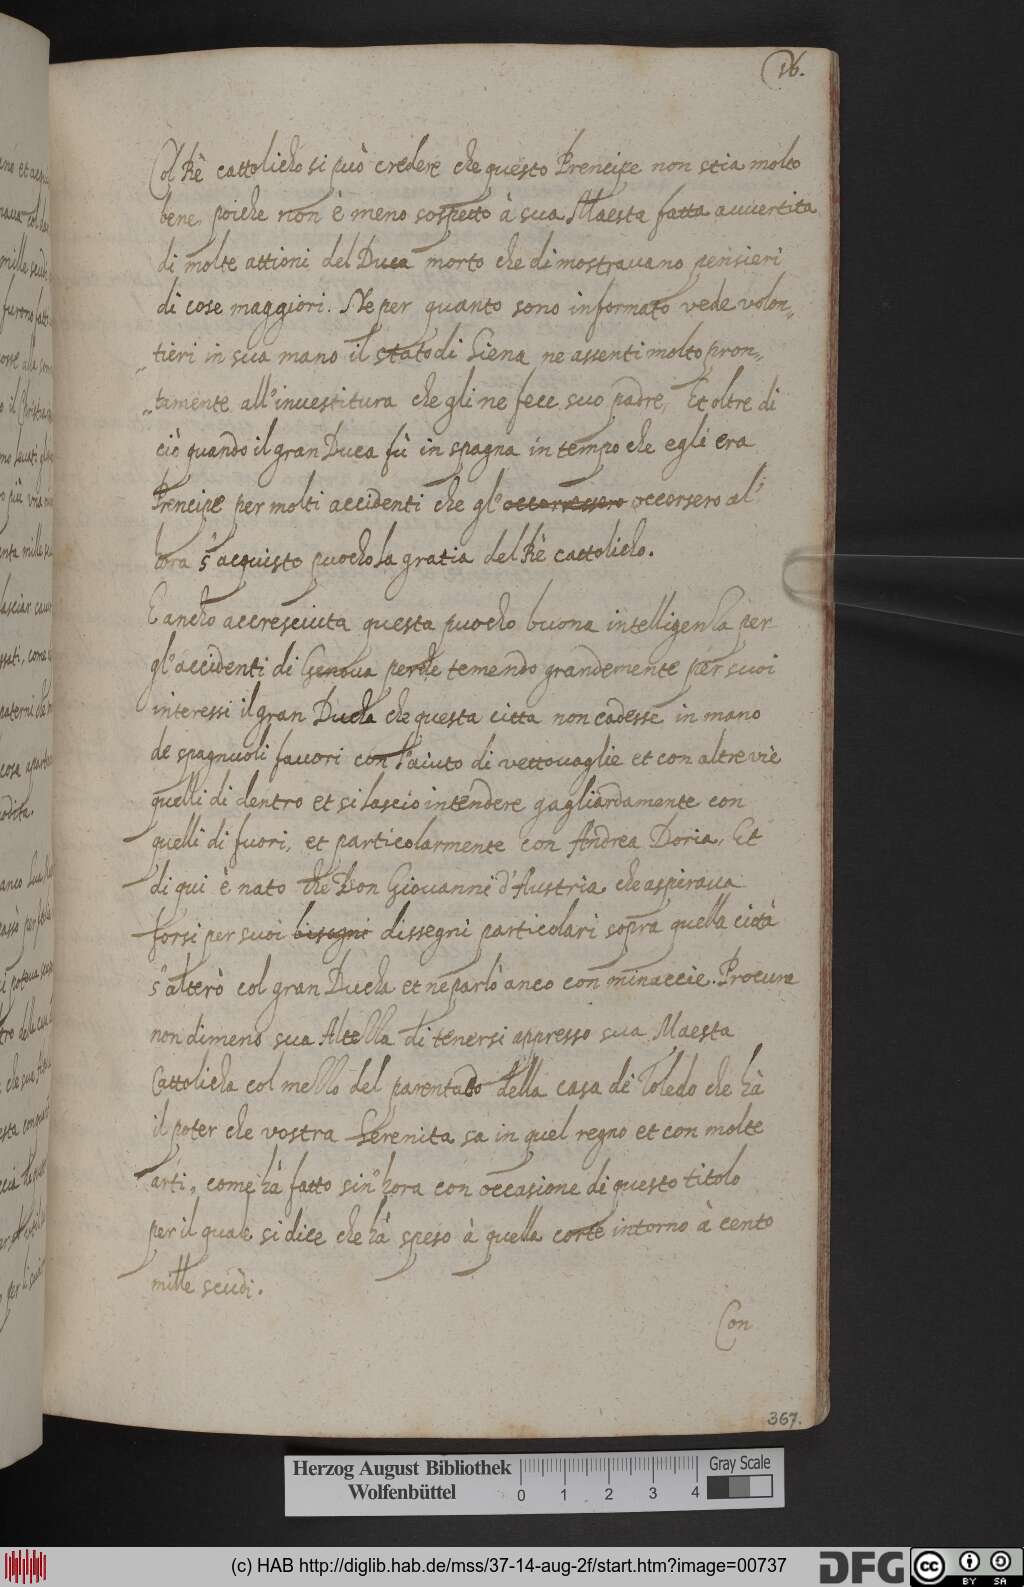 16.
Col Rè cattolicho si può credere che questo Prencipe non stia molto
bene, poiche non è meno sospetto à sua Maesta fatta avvertita
di molte attioni del Duca morto che dimostravano pensieri
di cose maggiori. Ne per quanto sono informato vede volon„
„tieri in sua mano il stato di Siena ne assenti molto pron„
„tamente all'investitura che gli ne fece suo padre, Et oltre di
ciò quando il gran Duca fù in spagna in tempo che egli era
Prencipe per molti accidenti che gl'occorressero occorsero al'
hora s'acquisto puocho la gratia del Rè cattolicho.
E ancho accresciuta questa puocho buona intelligenza per
gl'accidenti di Genova perche temendo grandemente per suoi
interessi il gran Ducha che questa citta non cadesse in mano
de spagnuoli favori con l'aiuto di vettovaglie et con altre vie
quelli di dentro et si lascio intendere gagliardamente con
quelli di fuori, et particolarmente con Andrea Doria, Et
di qui è nato che Don Giovanni d'Austria che aspirava
forsi per suoi bisogni dissegni particolari sopra quella città
s'alterò col gran Ducha et ne parlò anco con minaccie. Procura
non dimeno sua Altezza di tenersi appresso sua Maesta
Cattolicha col mezzo del parentado della casa dè Toledo che hà
il poter che vostra Serenita sa in quel regno et con molte
arti, come hà fatto sin'hora con occasione di questo titolo
per il quale si dice che hà speso à quella corte intorno à cento
mille scudi.
Con
367.
Herzog August Bibliothek
Wolfenbüttel
0 1 2 3 4
Gray Scale
(c) HAB http://diglib.hab.de/mss/37-14-aug-2f/start.htm?image=00737
DFG
cc BY SA